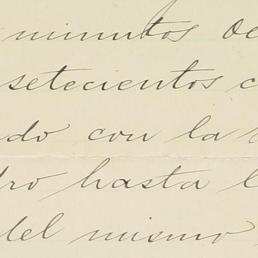 minutos de
setecientos c
do con la
ro hasta l
del mismo